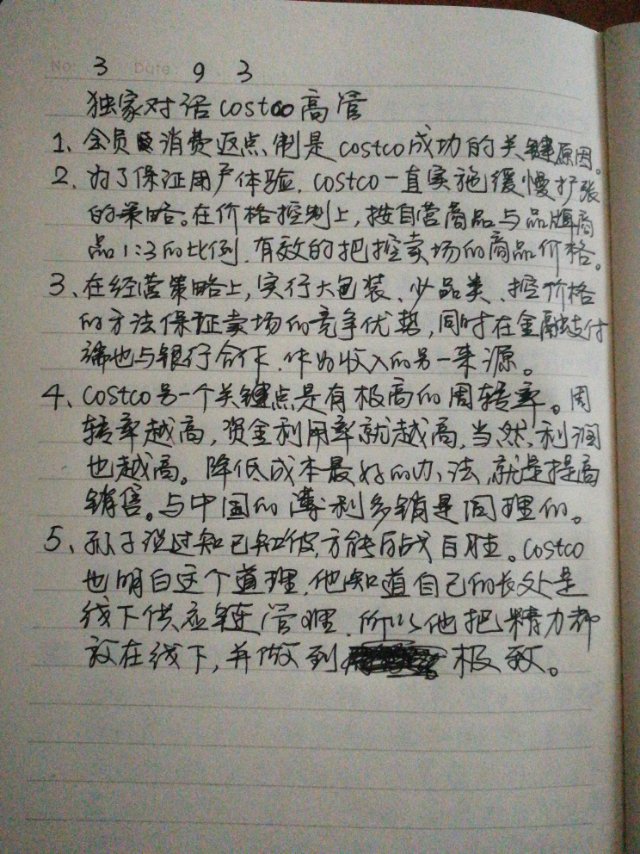 No: 3 Date: 9 3
独家对话costco高管
1、会员消费返点制是costco成功的关键原因。
2、为了保证用户体验，costco一直实施缓慢扩张
的策略。在价格控制上，按自营商品与品牌商
品1:3的比例，有效的把控卖场的商品价格。
3、在经营策略上，实行大包装、少品类、控价格
的方法保证卖场的竞争优势，同时在金融支付
端也与银行合作，作为收入的另一来源。
4、costco另一个关键点是有极高的周转率。周
转率越高，资金利用率就越高，当然，利润
也越高。降低成本最好的办法，就是提高
销售。与中国的薄利多销是同理的。
5、孙子说过知己知彼，方能百战百胜。costco
也明白这个道理，他知道自己的长处是
线下供应链管理，所以他把精力都
放在线下，并做到极致。